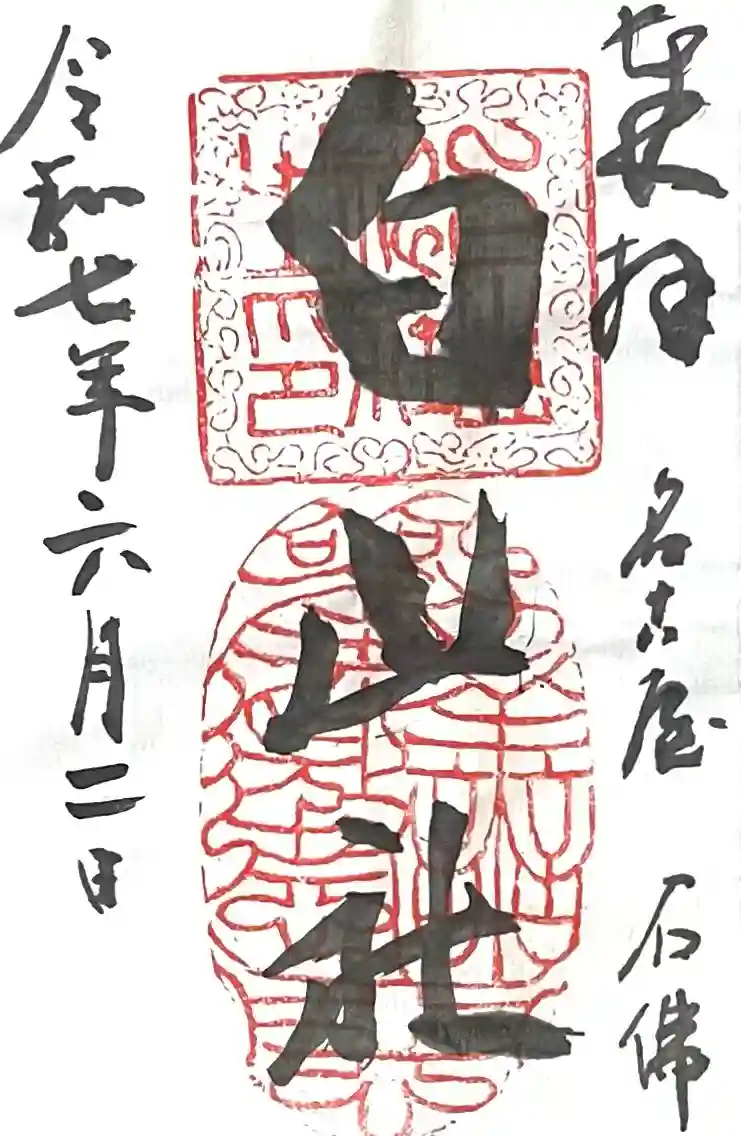 奉拝 名古屋 石佛
白山社
令和七年六月二日